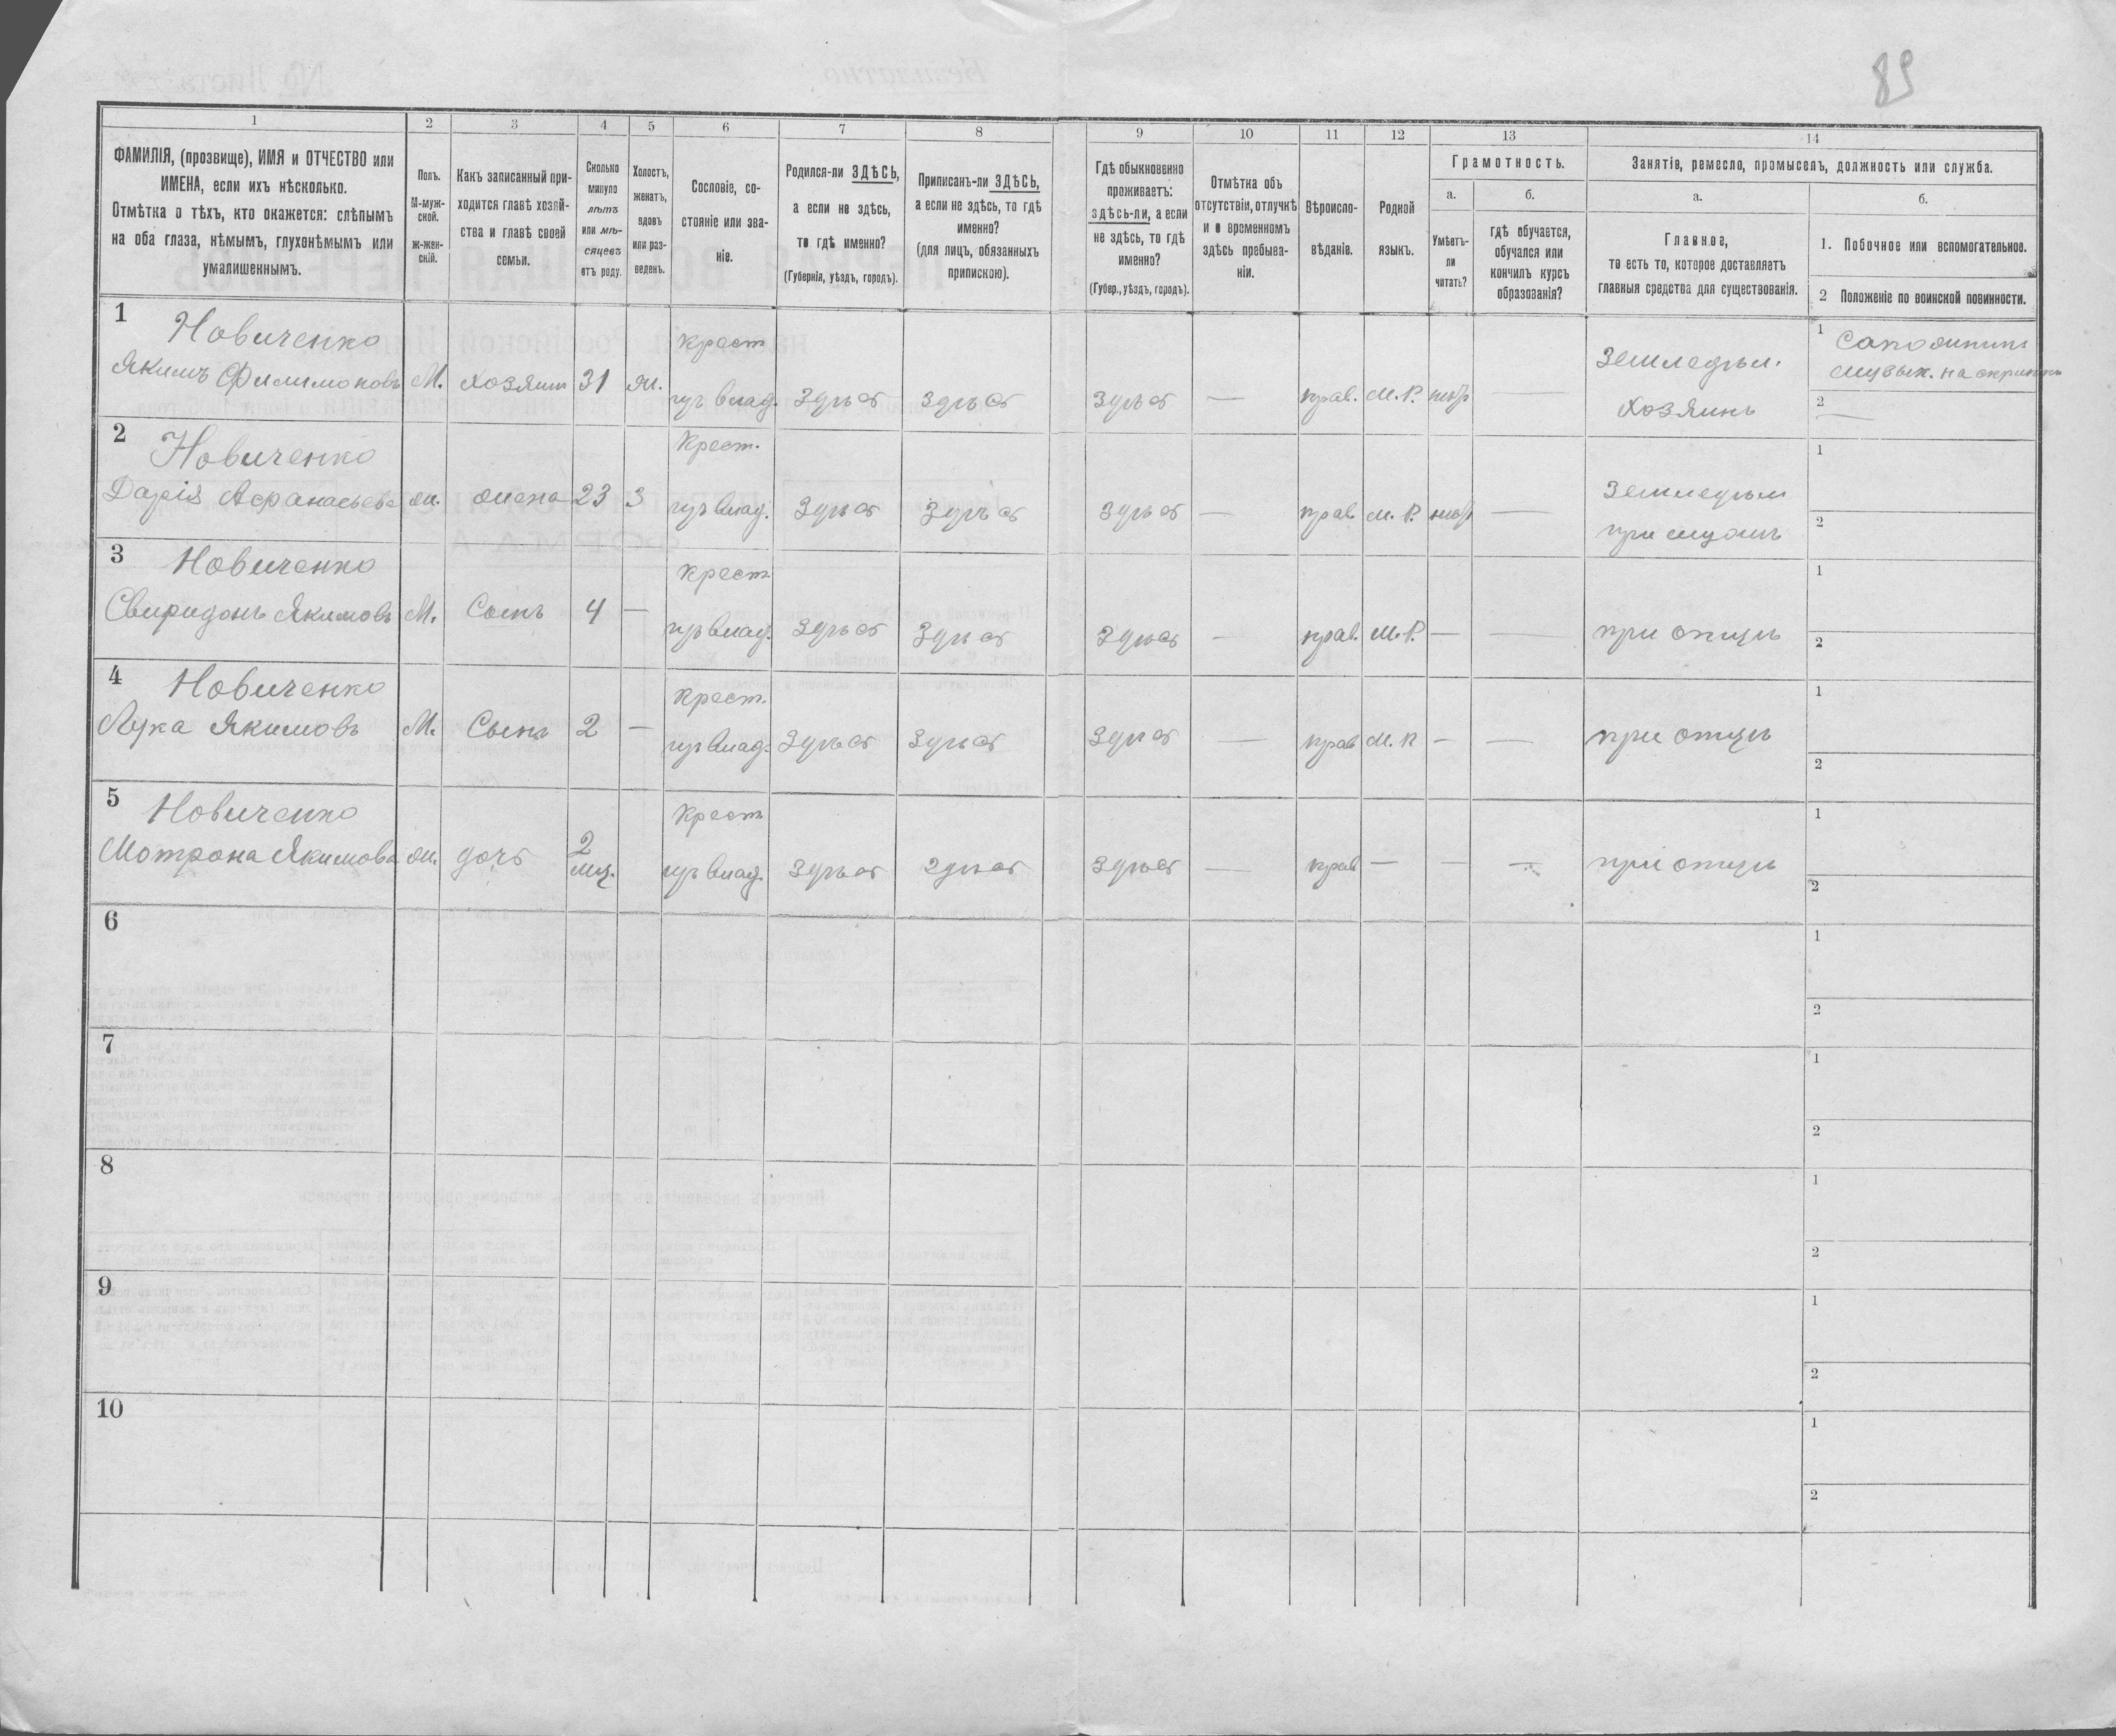 89
1
2
3
4
5
6
7
8
9
10
11
12
13
14
ФАМИЛІЯ, (прозвище), ИМЯ и ОТЧЕСТВО или
ИМЕНА, если ихъ нѣсколько.
Отмѣтка о тѣхъ, кто окажется: слѣпымъ
на оба глаза, нѣмымъ, глухонѣмымъ или
умалишеннымъ.
Полъ.
М-муж-
ской.
ж-жен-
скій.
Какъ записанный при-
ходится главѣ хозяй-
ства и главѣ своей
семьи.
Сколько
минуло
лѣтъ
или мѣ-
сяцевъ
отъ роду.
Холостъ,
женатъ,
вдовъ
или раз-
веденъ.
Сословіе, со-
стояніе или зва-
ніе.
Родился-ли ЗДѢСЬ,
а если не здѣсь,
то гдѣ именно?
(Губернія, уѣздъ, городъ).
Приписанъ-ли ЗДѢСЬ,
а если не здѣсь, то гдѣ
именно?
(для лицъ, обязанныхъ
припискою).
Гдѣ обыкновенно
проживаетъ:
здѣсь-ли, а если
не здѣсь, то гдѣ
именно?
(Губер., уѣздъ, городъ).
Отмѣтка объ
отсутствіи, отлучкѣ
и о временномъ
здѣсь пребыва-
ніи.
Вѣроиспо-
вѣданіе.
Родной
языкъ.
Грамотность.
а.
Умѣетъ-
ли
читать?
б.
гдѣ обучается,
обучался или
кончилъ курсъ
образованія?
Занятіе, ремесло, промыселъ, должность или служба.
а.
Главное,
то есть то, которое доставляетъ
главныя средства для существованія.
б.
1. Побочное или вспомогательное.
2 Положеніе по воинской повинности.
1 Новиченко
Якимъ Филимоновъ М. хозяин 31 ж. Крест Здѣсь Здѣсь Здѣсь — прав. М.Р. — Земледѣл. хозяинъ
1
музык. на скрипки
2 —
2 Новиченко
Дарія Афанасьева ж. жена 23 З Крест. Здѣсь Здѣсь Здѣсь — прав. М. Р. — Земледѣл
1
2
3 Новиченко
Свиридонъ Якимовъ М. Сынъ 4 — Крест Здѣсь Здѣсь Здѣсь — прав. М.Р. — — при отцѣ
1
2
4 Новиченко
Лука Якимовъ М. Сынъ 2 — Крест. Здѣсь Здѣсь Здѣсь — прав М. Р — — при отцѣ
1
2
5 Новиченко
Мотрона Якимова ж. дочь 2 мц. Крест Здѣсь Здѣсь Здѣсь — прав — — — при отцѣ
1
2
6
1
2
7
1
2
8
1
2
9
1
2
10
1
2